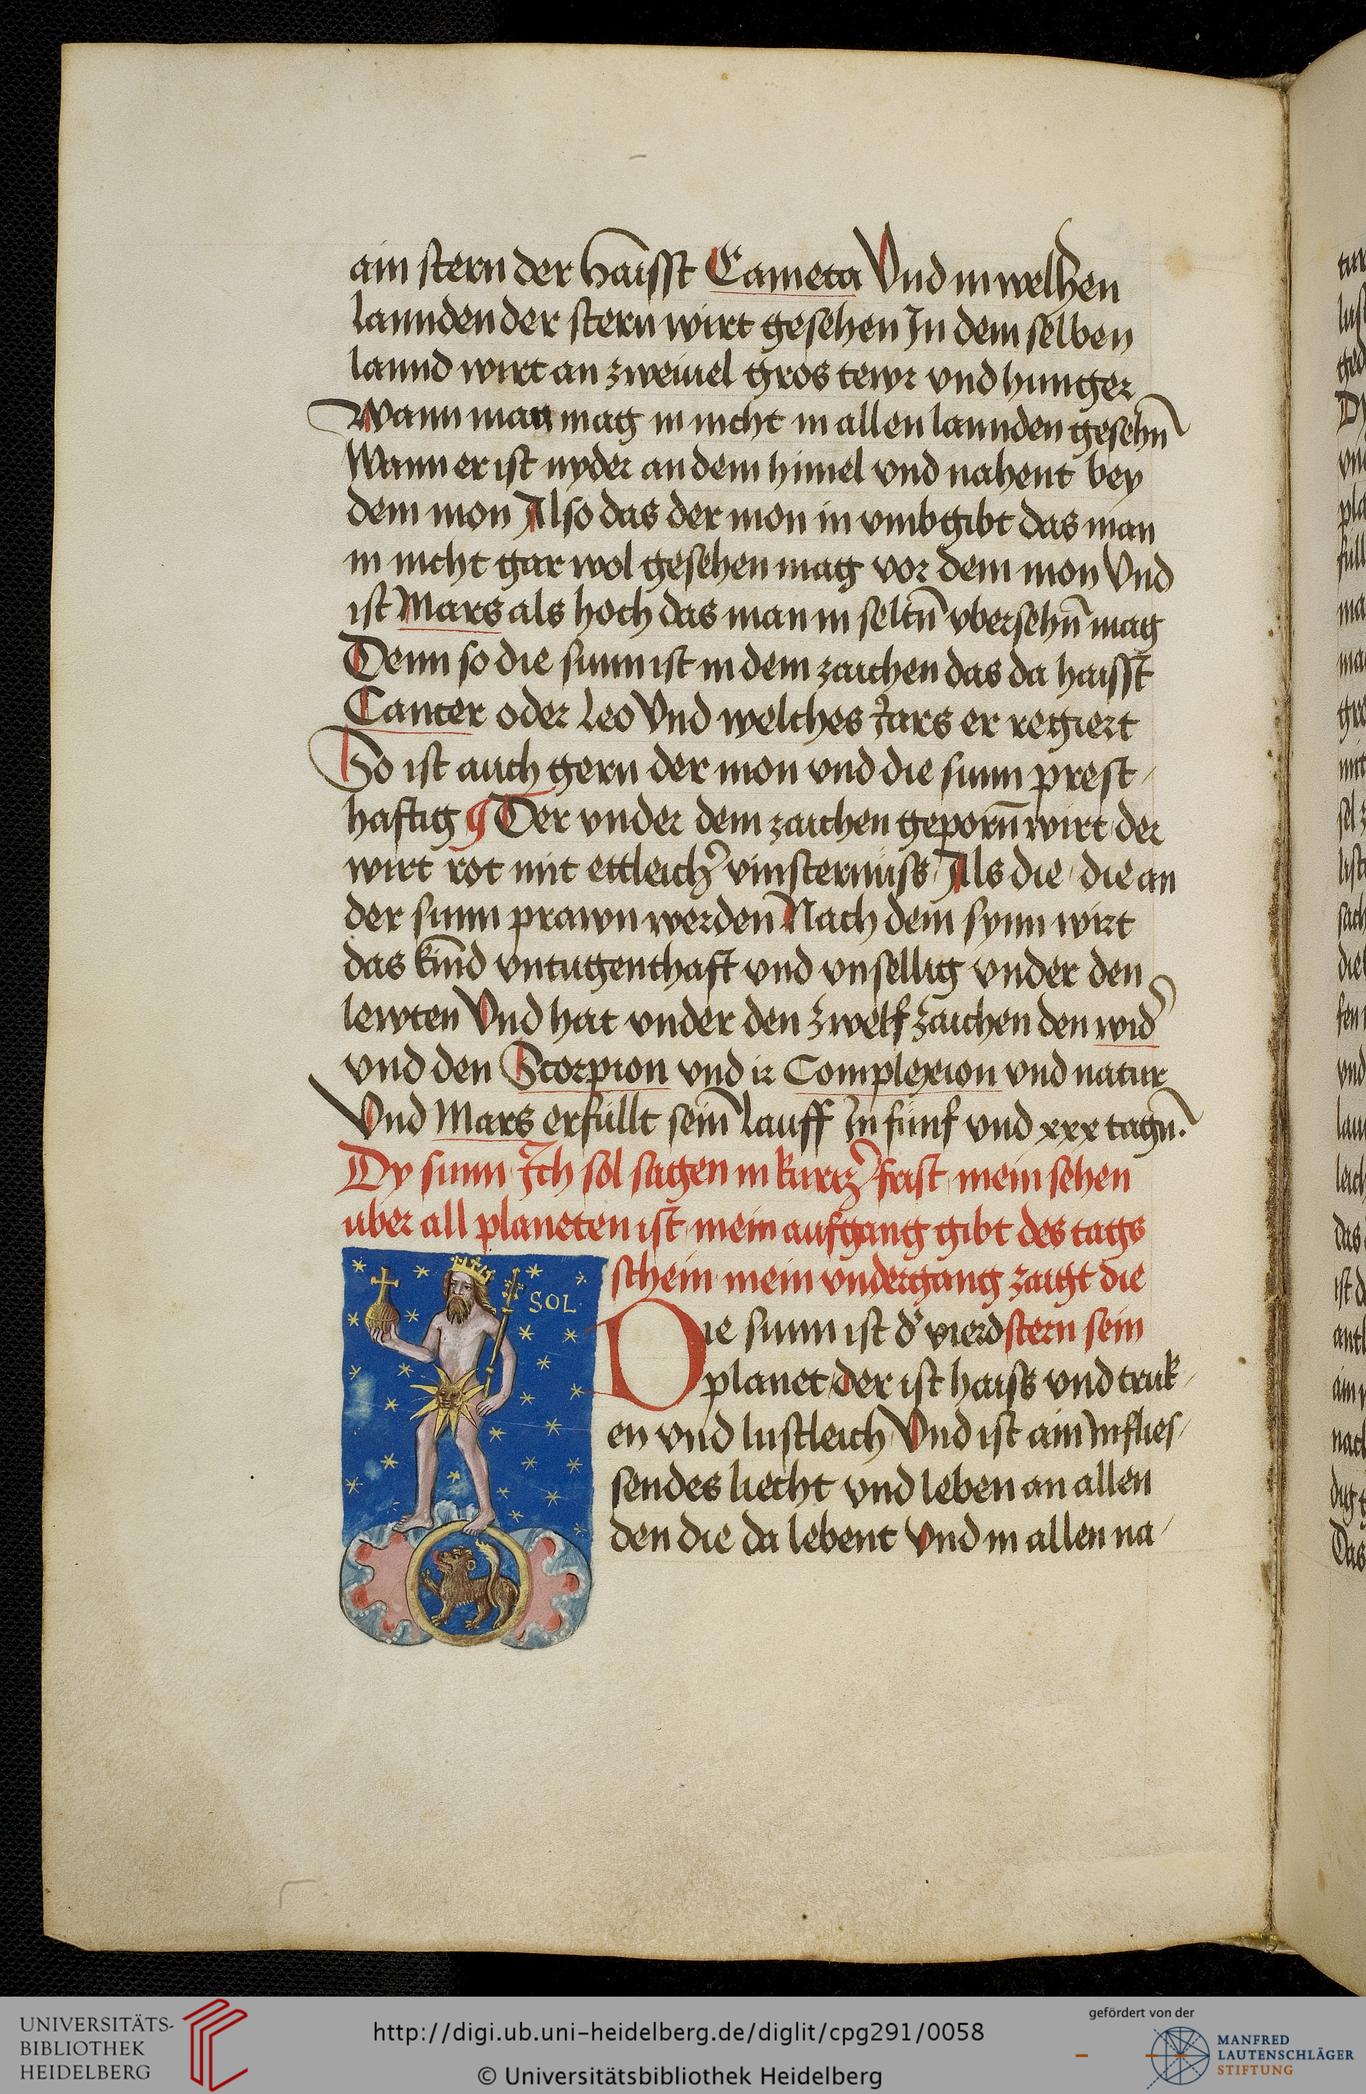 ain stern der haisst Cameta Vnd in welhen
lannden der stern wirt gesehen In dem selben
lannd wirt an zweiuel gros tewr vnd hunger
Wann man mag in nicht in allen lannden gesehn̄
Wann er ist nyder an dem himel vnd nahent bey
dem mon Also das der mon in vmbgibt das man
in nicht gar wol gesehen mag vor dem mon Vnd
ist Mars als hoch das man in seltn̄ vbersehn̄ mag
Denn so die sunn ist in dem zaichen das da haisst
Cancer oder Leo Vnd welches Jars er regiert
So ist auch gern der mon vnd die sunn prest-
haftig Der vnder dem zaichen geporn̄ wirt der
wirt rot mit ettleich' vinsternuss Als die die an
der sunn prawn werden Nach dem synn wirt
das kind vntugenthaft vnd vnsellig vnder den
lewten Vnd hat vnder den zwelf zaichen den wid'
vnd den Scorpion vnd ir Complexion vnd natur
Vnd Mars erfüllt sein̄ lauff In fünf vnd xxx tagn̄.
Dy sunn Ich sol sagen in kurtz' frist mein sehen
uber all planeten ist mein aufgang gibt des tags
schein mein vndergang zaigt die
SOL
Die sunn ist d' vierd stern sein
planet der ist haiss vnd truk-
en vnd lustleich Vnd ist ain Influes-
sendes liecht vnd leben an allen
den die da lebent Vnd in allen na-
UNIVERSITÄTS-
BIBLIOTHEK
HEIDELBERG
http://digi.ub.uni-heidelberg.de/diglit/cpg291/0058
© Universitätsbibliothek Heidelberg
gefördert von der
MANFRED
LAUTENSCHLÄGER
STIFTUNG